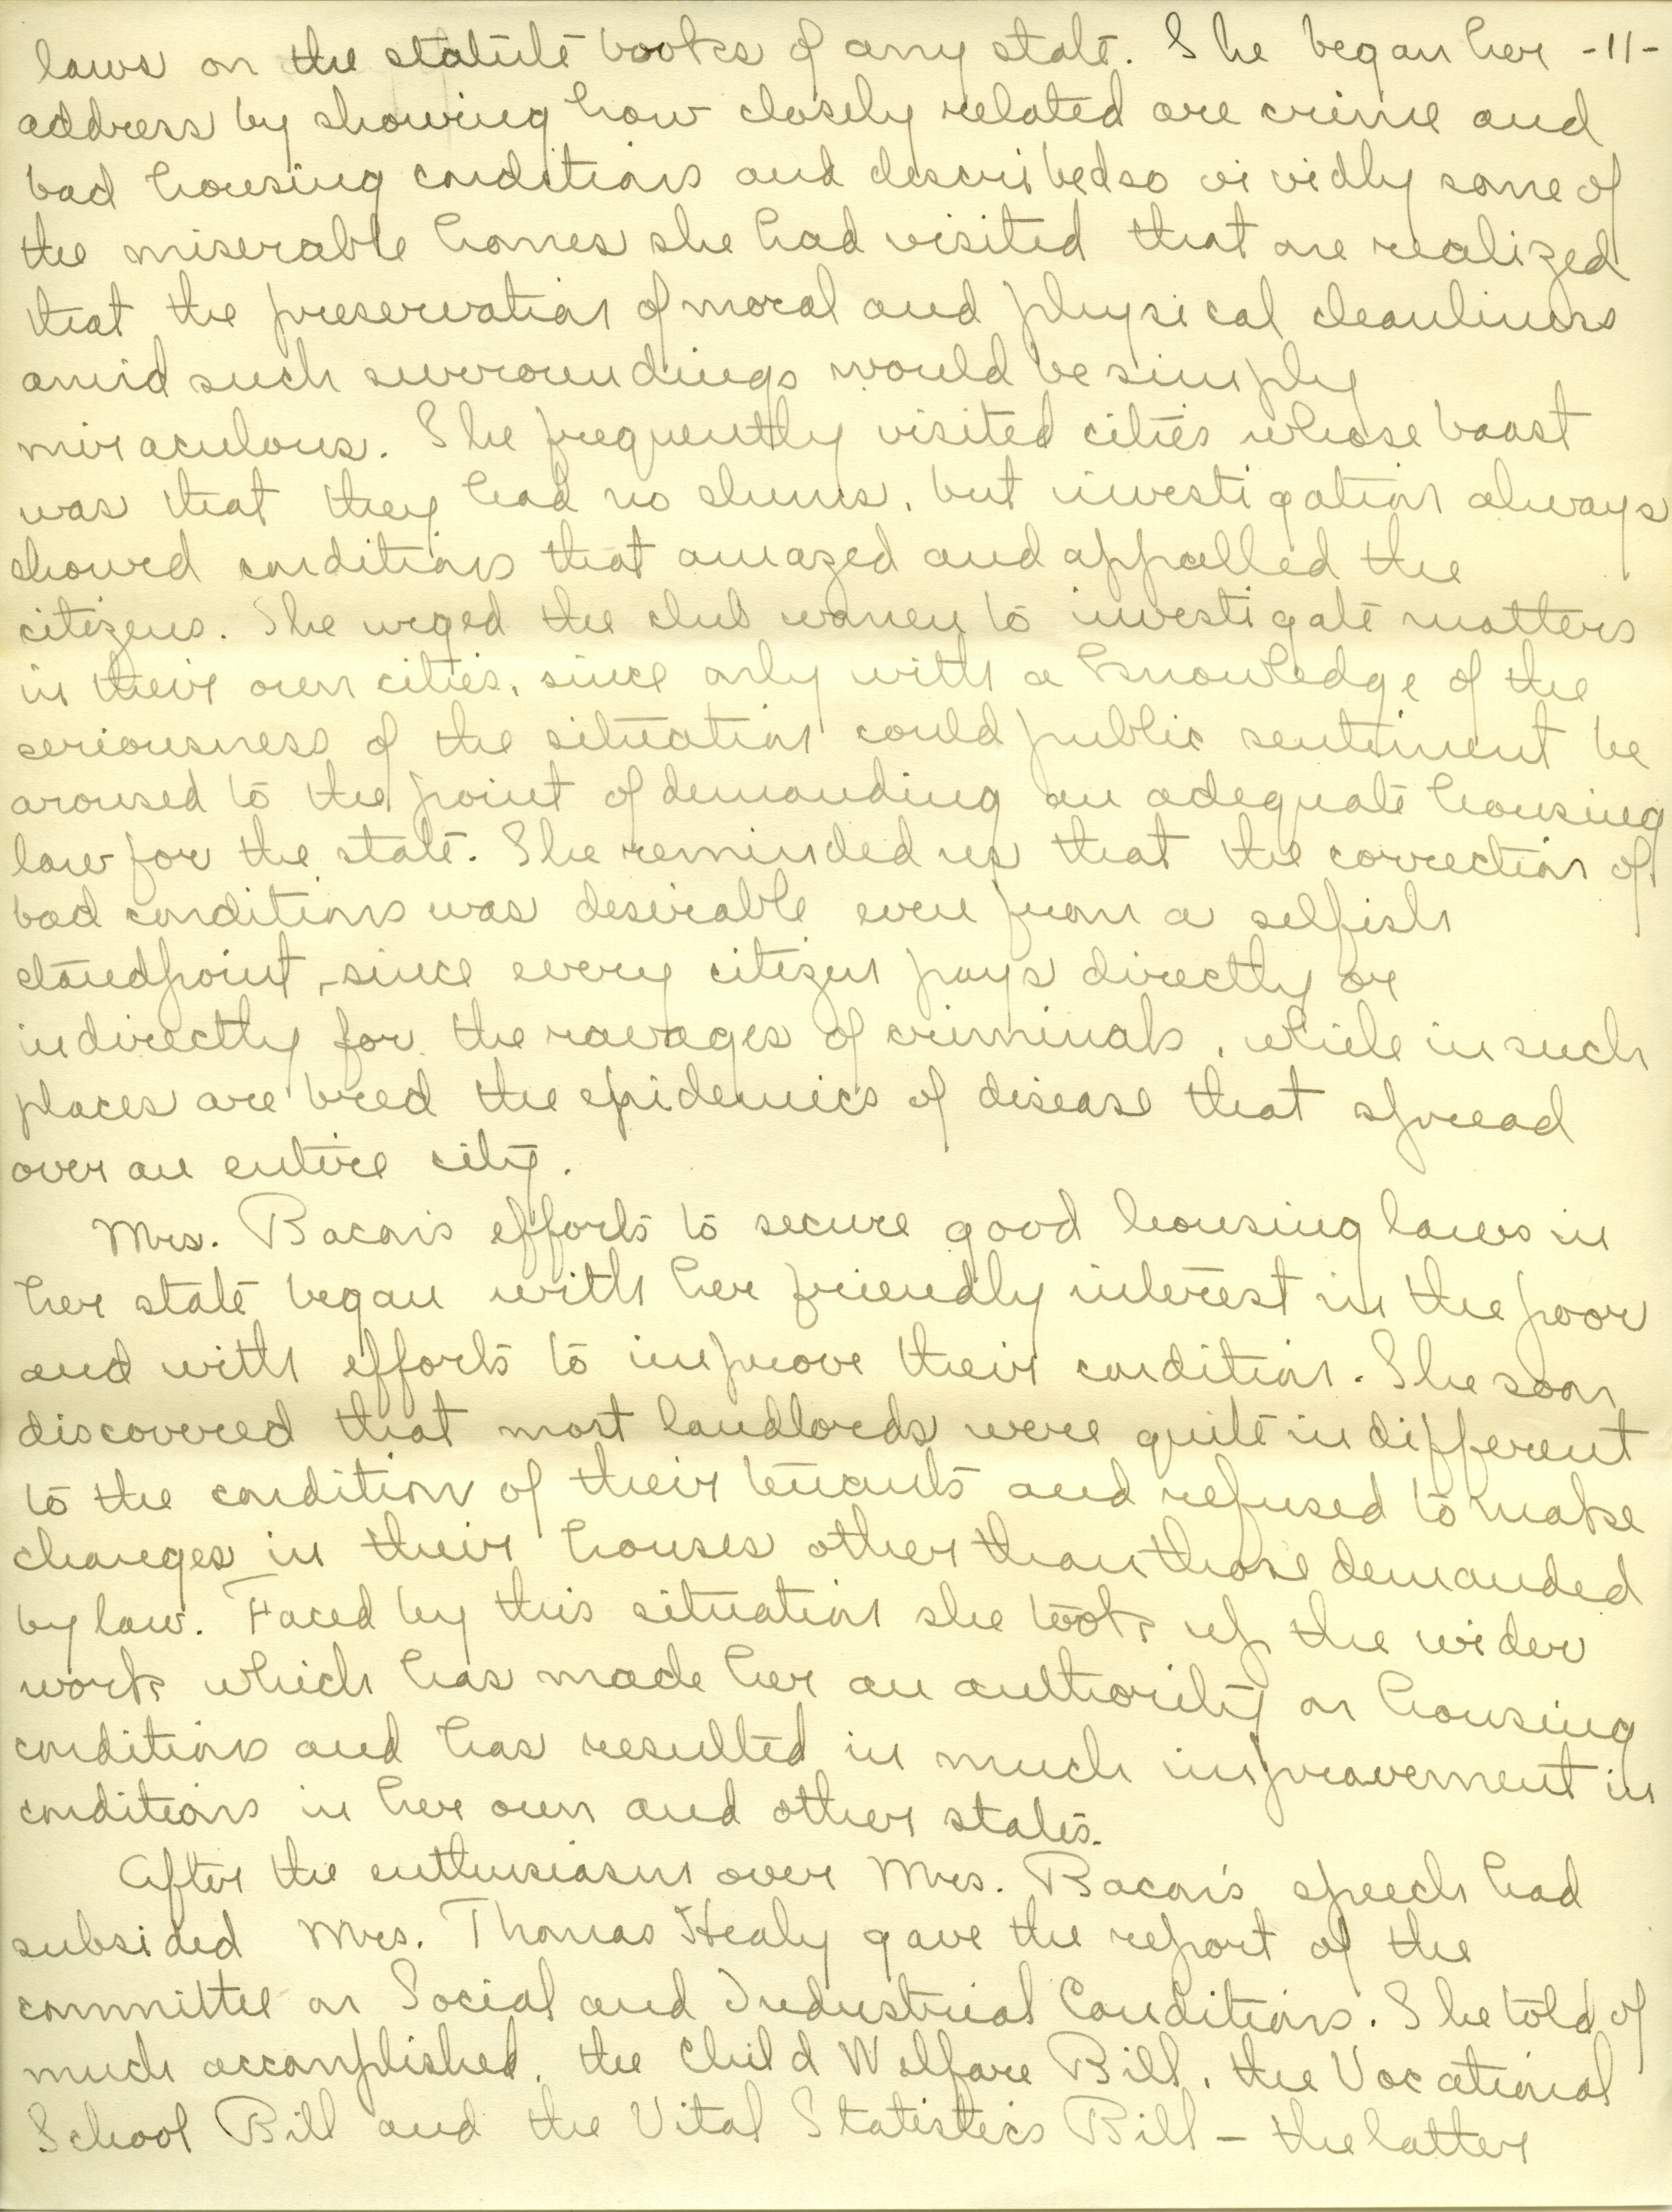 laws on the statute books of any state. She began her -11-
address by showing how closely related are crime and
bad housing conditions and described so vividly some of
the miserable homes she had visited that one realized
that the preservation of moral and physical cleanliness
amid such surroundings would be simply
miraculous. She frequently visited cities whose boast
was that they had no slums, but investigation always
showed conditions that amazed and appalled the
citizens. She urged the club women to investigate matters
in their own cities, since only with a knowledge of the
seriousness of the situation could public sentiment be
aroused to the point of demanding an adequate housing
law for the state. She reminded us that the correction of
bad conditions was desirable even from a selfish
standpoint, since every citizen pays directly or
indirectly for the ravages of criminals, while in such
places are bred the epidemics of disease that spread
over an entire city.
Mrs. Bacon's efforts to secure good housing laws in
her state began with her friendly interest in the poor
and with efforts to improve their condition. She soon
discovered that most landlords were quite indifferent
to the condition of their tenants and refused to make
changes in their houses other than those demanded
by law. Faced by this situation she took up the wider
work which has made her an authority on housing
conditions and has resulted in much improvement in
conditions in her own and other states.
After the enthusiasm over Mrs. Bacon's speech had
subsided Mrs. Thomas Healy gave the report of the
committee on Social and Industrial Conditions. She told of
much accomplished, the Child Welfare Bill, the Vocational
School Bill and the Vital Statistics Bill - the latter